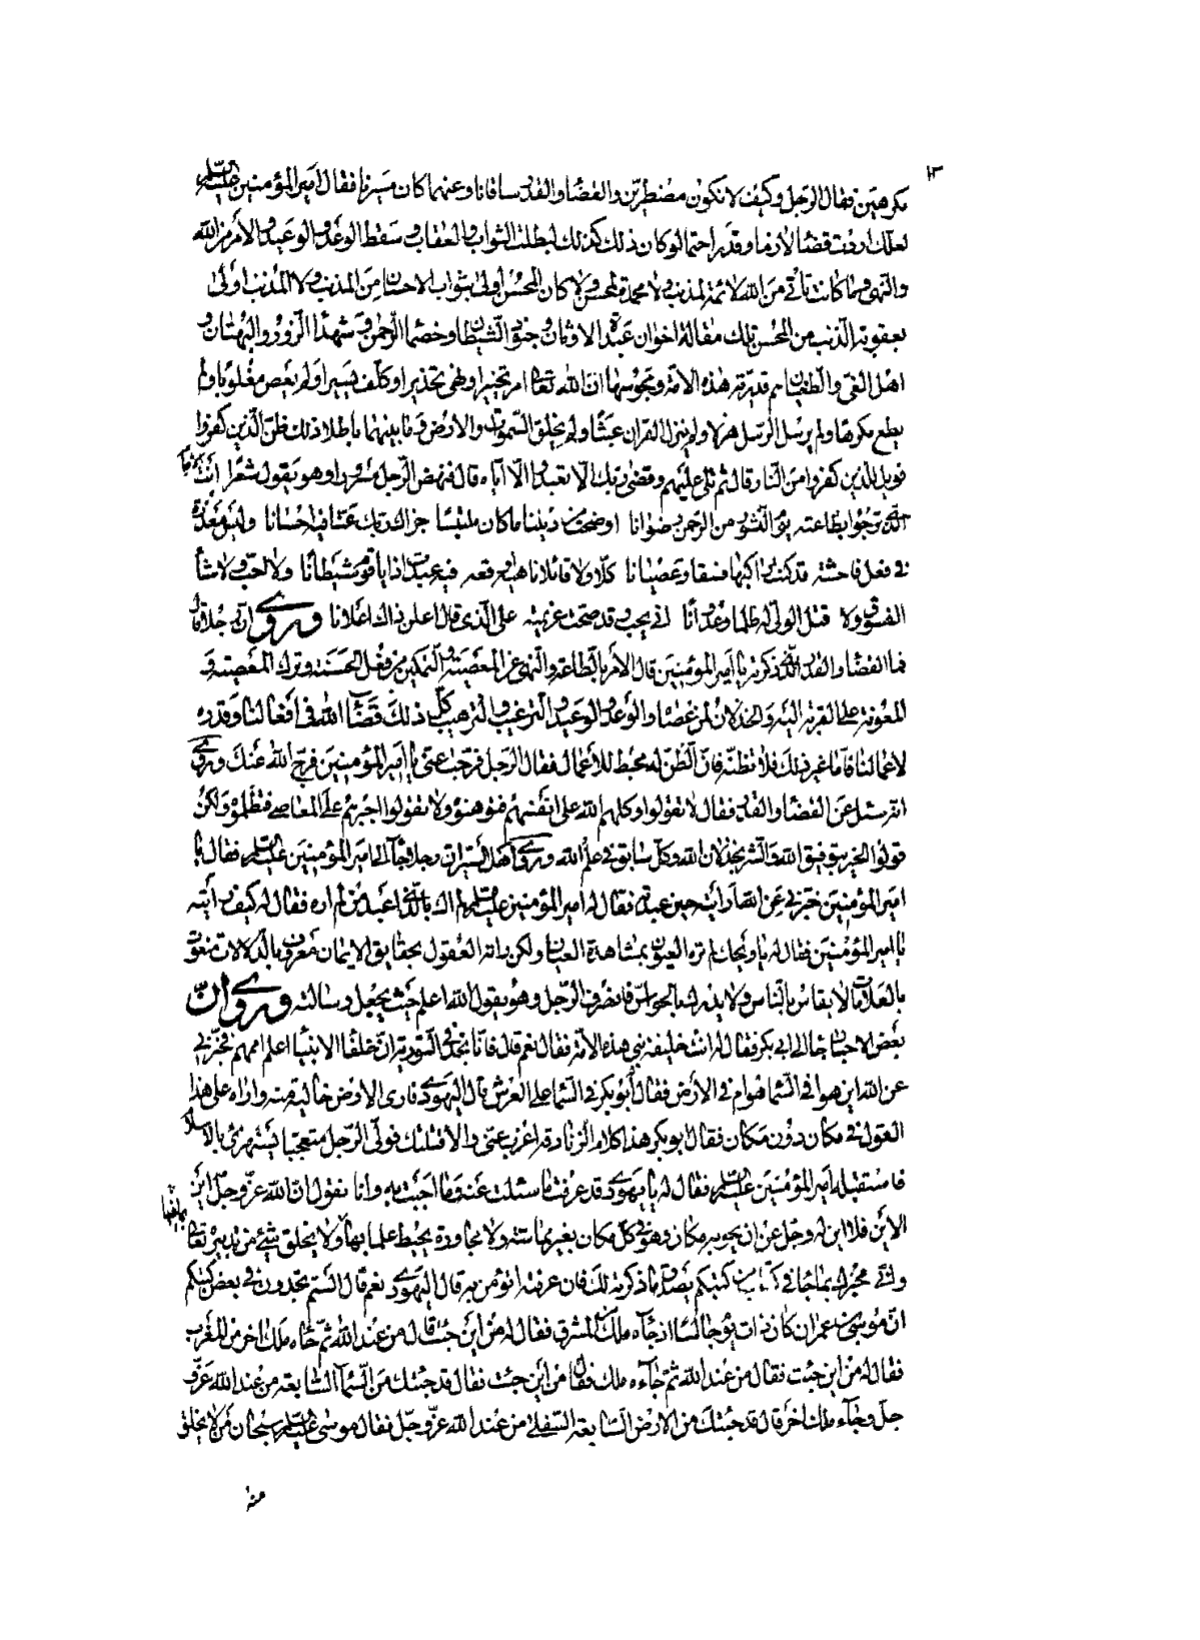 ١٣
مكرهين فقال الرجل وكيف لا نكون مضطرين والقضاء والقدر ساقانا وعنهما كان مسيرنا فقال امير المؤمنين عليه السلم
لعلك اردت قضاء لازما وقدرا حتما لو كان ذلك كذلك لبطلت الثواب والعقاب وسقط الوعد والوعيد والامر من الله
والنهى وما كانت تأتى من الله لائمة لمذنب ولا محمدة لمحسن ولا كان المحسن اولى بثواب الاحسان من المذنب ولا المذنب اولى
بعقوبة الذنب من المحسن تلك مقالة اخوان عبدة الاوثان وجنود الشيطان وخصماء الرحمن وشهداء الزور والبهتان و
اهل الغى والطغيان هم قدرية هذه الامة ومجوسها ان الله تعالى امر تخييرا ونهى تحذيرا وكلف يسيرا ولم يعص مغلوبا ولم
يطع مكرها ولم يرسل الرسل هزلا ولم ينزل القران عبثا ولم يخلق السموات والارض وما بينهما باطلا ذلك ظن الذين كفروا
فويل للذين كفروا من النار قال ثم تلى عليهم وقضى ربك الا تعبدوا الا اياه قال فنهض الرجل مسرورا وهو يقول شعرا انت الامام
الذى نرجو بطاعته يوم النشور من الرحمن رضوانا اوضحت من ديننا ما كان ملتبسا جزاك ربك عنا فيه احسانا وليس معذرة
فى فعل فاحشة قد كنت راكبها فسقا وعصيانا كلا ولا قائلا ناهيه اوقعه فيه عبدت اذا يا قوم شيطانا ولا احب ولا شاء
الفسوق ولا قتل الولى له ظلما وعدوانا انى يحب وقد صحت عزيمته على الذى قال اعلن ذاك اعلانا وروى ان رجلا قال
فما القضاء والقدر الذى ذكرته يا امير المؤمنين قال الامر بالطاعة والنهى عن المعصية والتمكين من فعل الحسنة وترك المعصية و
المعونة على القربة اليه والخذلان لمن عصاه والوعد والوعيد والترغيب والترهيب كل ذلك قضاء الله فى افعالنا وقدره
لاعمالنا فاما غير ذلك فلا تظنه فان الظن له محبط للاعمال فقال الرجل فرجت عنى يا امير المؤمنين فرج الله عنك وروى
انه سئل عن القضاء والقدر فقال لا تقولوا وكلهم الله على انفسهم فتوهنوه ولا تقولوا اجبرهم على المعاصى فتظلموه ولكن
قولوا الخير بتوفيق الله والشر بخذلان الله وكل سابق فى علم الله وروى اهل السير ان رجلا جاء الى امير المؤمنين عليه السلم فقال يا
امير المؤمنين خبرنى عن الله أرايته حين عبدته فقال له امير المؤمنين عليه السلم لم اك بالذى اعبد من لم اره فقال له كيف رأيته
يا امير المؤمنين فقال له يا ويحك لم تره العيون بمشاهدة العيان ولكن راته العقول بحقايق الايمان معروف بالدلالات منعوت
بالعلامات لا يقاس بالناس ولا يدرك بالحواس فانصرف الرجل وهو يقول الله اعلم حيث يجعل رسالته وروى ان
بعض الاحبار جاء الى ابى بكر فقال له انت خليفة نبى هذه الامة فقال نعم قال فانا نجد فى التورية ان خلفاء الانبياء اعلم اممهم فخبرنى
عن الله اين هو افى السماء هو ام فى الارض فقال ابو بكر فى السماء على العرش قال اليهودى فارى الارض خالية منه واراه على هذا
القول فى مكان دون مكان فقال ابو بكر هذا كلام الزنادقة اغرب عنى والا قتلتك فولى الرجل متعجبا يستهزئ بالاسلام
فاستقبله امير المؤمنين عليه السلم فقال له يا يهودى قد عرفت ما سئلت عنه وما اجبت به وانا نقول ان الله عز وجل اين
الاين فلا اين له وجل عن ان يحويه مكان وهو فى كل مكان بغير مماسة ولا مجاورة يحيط علما بما فيها ولا يخلو شئ من تدبيره تعالى
وانى مخبرك بما جاء فى كتاب من كتبكم يصدق ما ذكرته لك فان عرفته اتؤمن به قال اليهودى نعم قال الستم تجدون فى بعض كتبكم
ان موسى بن عمران كان ذات يوم جالسا اذ جاءه ملك من المشرق فقال له من اين جئت قال من عند الله ثم جاءه ملك اخر من المغرب
فقال له من اين جئت فقال من عند الله ثم جاءه ملك فقال من اين جئت فقال قد جئتك من السماء السابعة من عند الله عز و
جل وجاءه ملك اخر قال قد جئتك من الارض السابعة السفلى من عند الله عز وجل فقال موسى عليه السلم سبحان من لا يخلو
منه